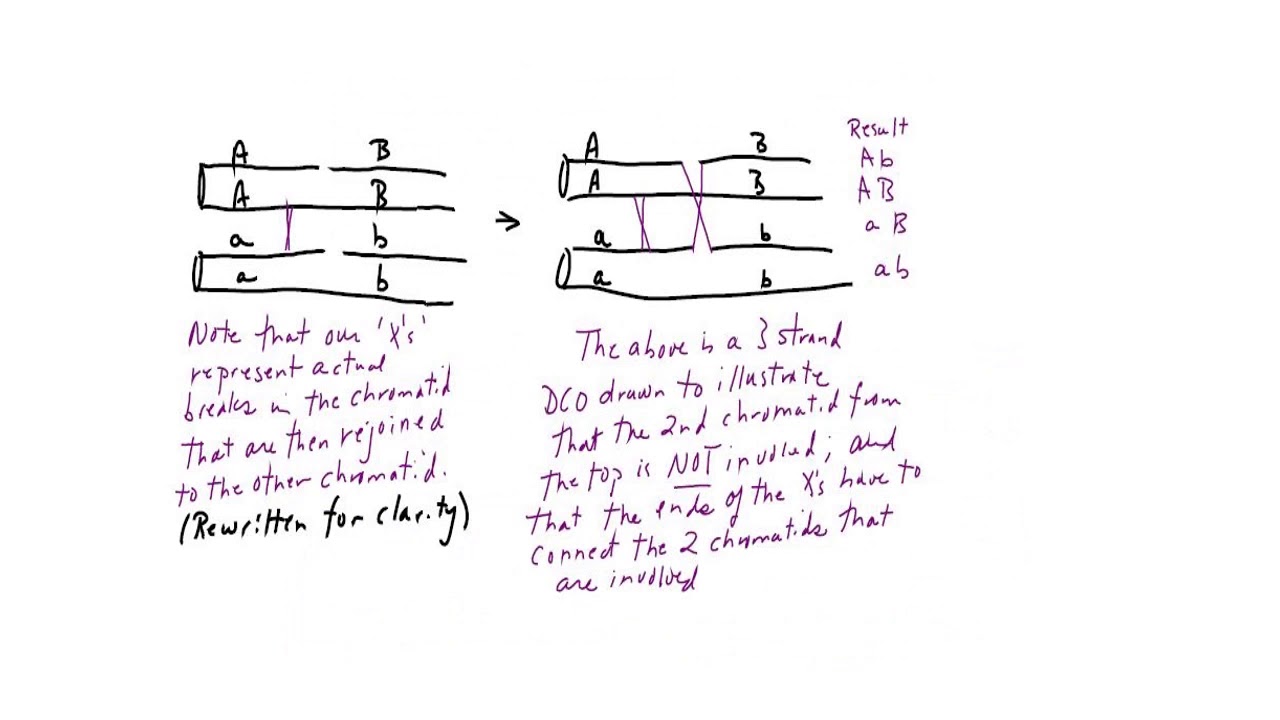 A B
A B
a b
a b
A B
A B
a b
a b
Result
Ab
AB
a B
ab
Note that our 'X's'
represent actual
breaks in the chromatid
that are then rejoined
to the other chromatid.
(Rewritten for clarity)
The above is a 3 strand
DCO drawn to illustrate
that the 2nd chromatid from
the top is NOT involved; and
that the ends of the X's have to
connect the 2 chromatids that
are involved